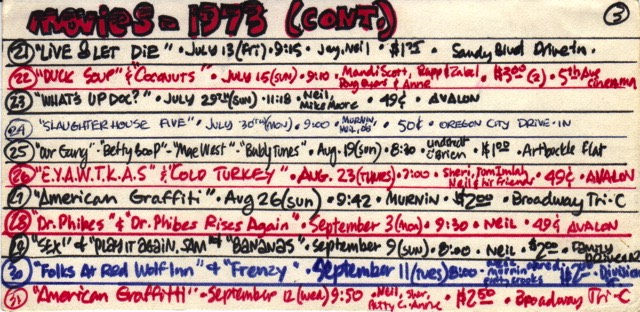 MOVIES - 1973 (CONT.) 3
21 "LIVE & LET DIE" • JULY 13 (FRI) • 9:15 • Jay, Neil • $1.75 • Sandy Blvd Drive-In.
22 "DUCK SOUP" & "COCONUTS" • JULY 15 (SUN) • 9:10 • Mandi Scott, Rapp & Zabel, Doug & Anne • $3.00 (2) • 5th Ave Cinema
23 "WHAT'S UP DOC?" • JULY 29TH (SUN) • 11:18 • Neil, Mike Moore • 49¢ • AVALON
24 "SLAUGHTERHOUSE FIVE" • JULY 30TH (MON) • 9:00 • MURNIN, NEIL • 50¢ • OREGON CITY DRIVE-IN
25 "Our Gang" "Betty Boop" "Mae West" "Baby Tunes" • Aug. 19 (SUN) • 8:30 • O'Brien • $1.00 • Artbuckle Flat
26 "E.Y.A.W.T.K.A.S" & "COLD TURKEY" • AUG. 23 (THURS) • 7:00 • Sheri, Tom Imlah, Neil & his friend • 49¢ • AVALON
27 "American Graffiti" • Aug 26 (sun) • 9:42 • MURNIN • $2.00 • Broadway Tri-C
28 "Dr. Phibes" & "Dr. Phibes Rises Again" • September 3 (mon) • 9:30 • NEIL • 49¢ AVALON
29 "SEX" & "PLAY IT AGAIN, SAM" & "BANANAS" • September 9 (sun) • 8:00 • NEIL • $2.00 • FAMILY DRIVE-IN
30 "Folks At Red Wolf Inn" & "Frenzy" • September 11 (tues) 8:00 • Neil, murnin, patty crooks • $2.00 • Division
31 "American Graffitti" • September 12 (wed) 9:50 • Neil, Sheri, Patty C. Anne • $2.50 • Broadway Tri-C